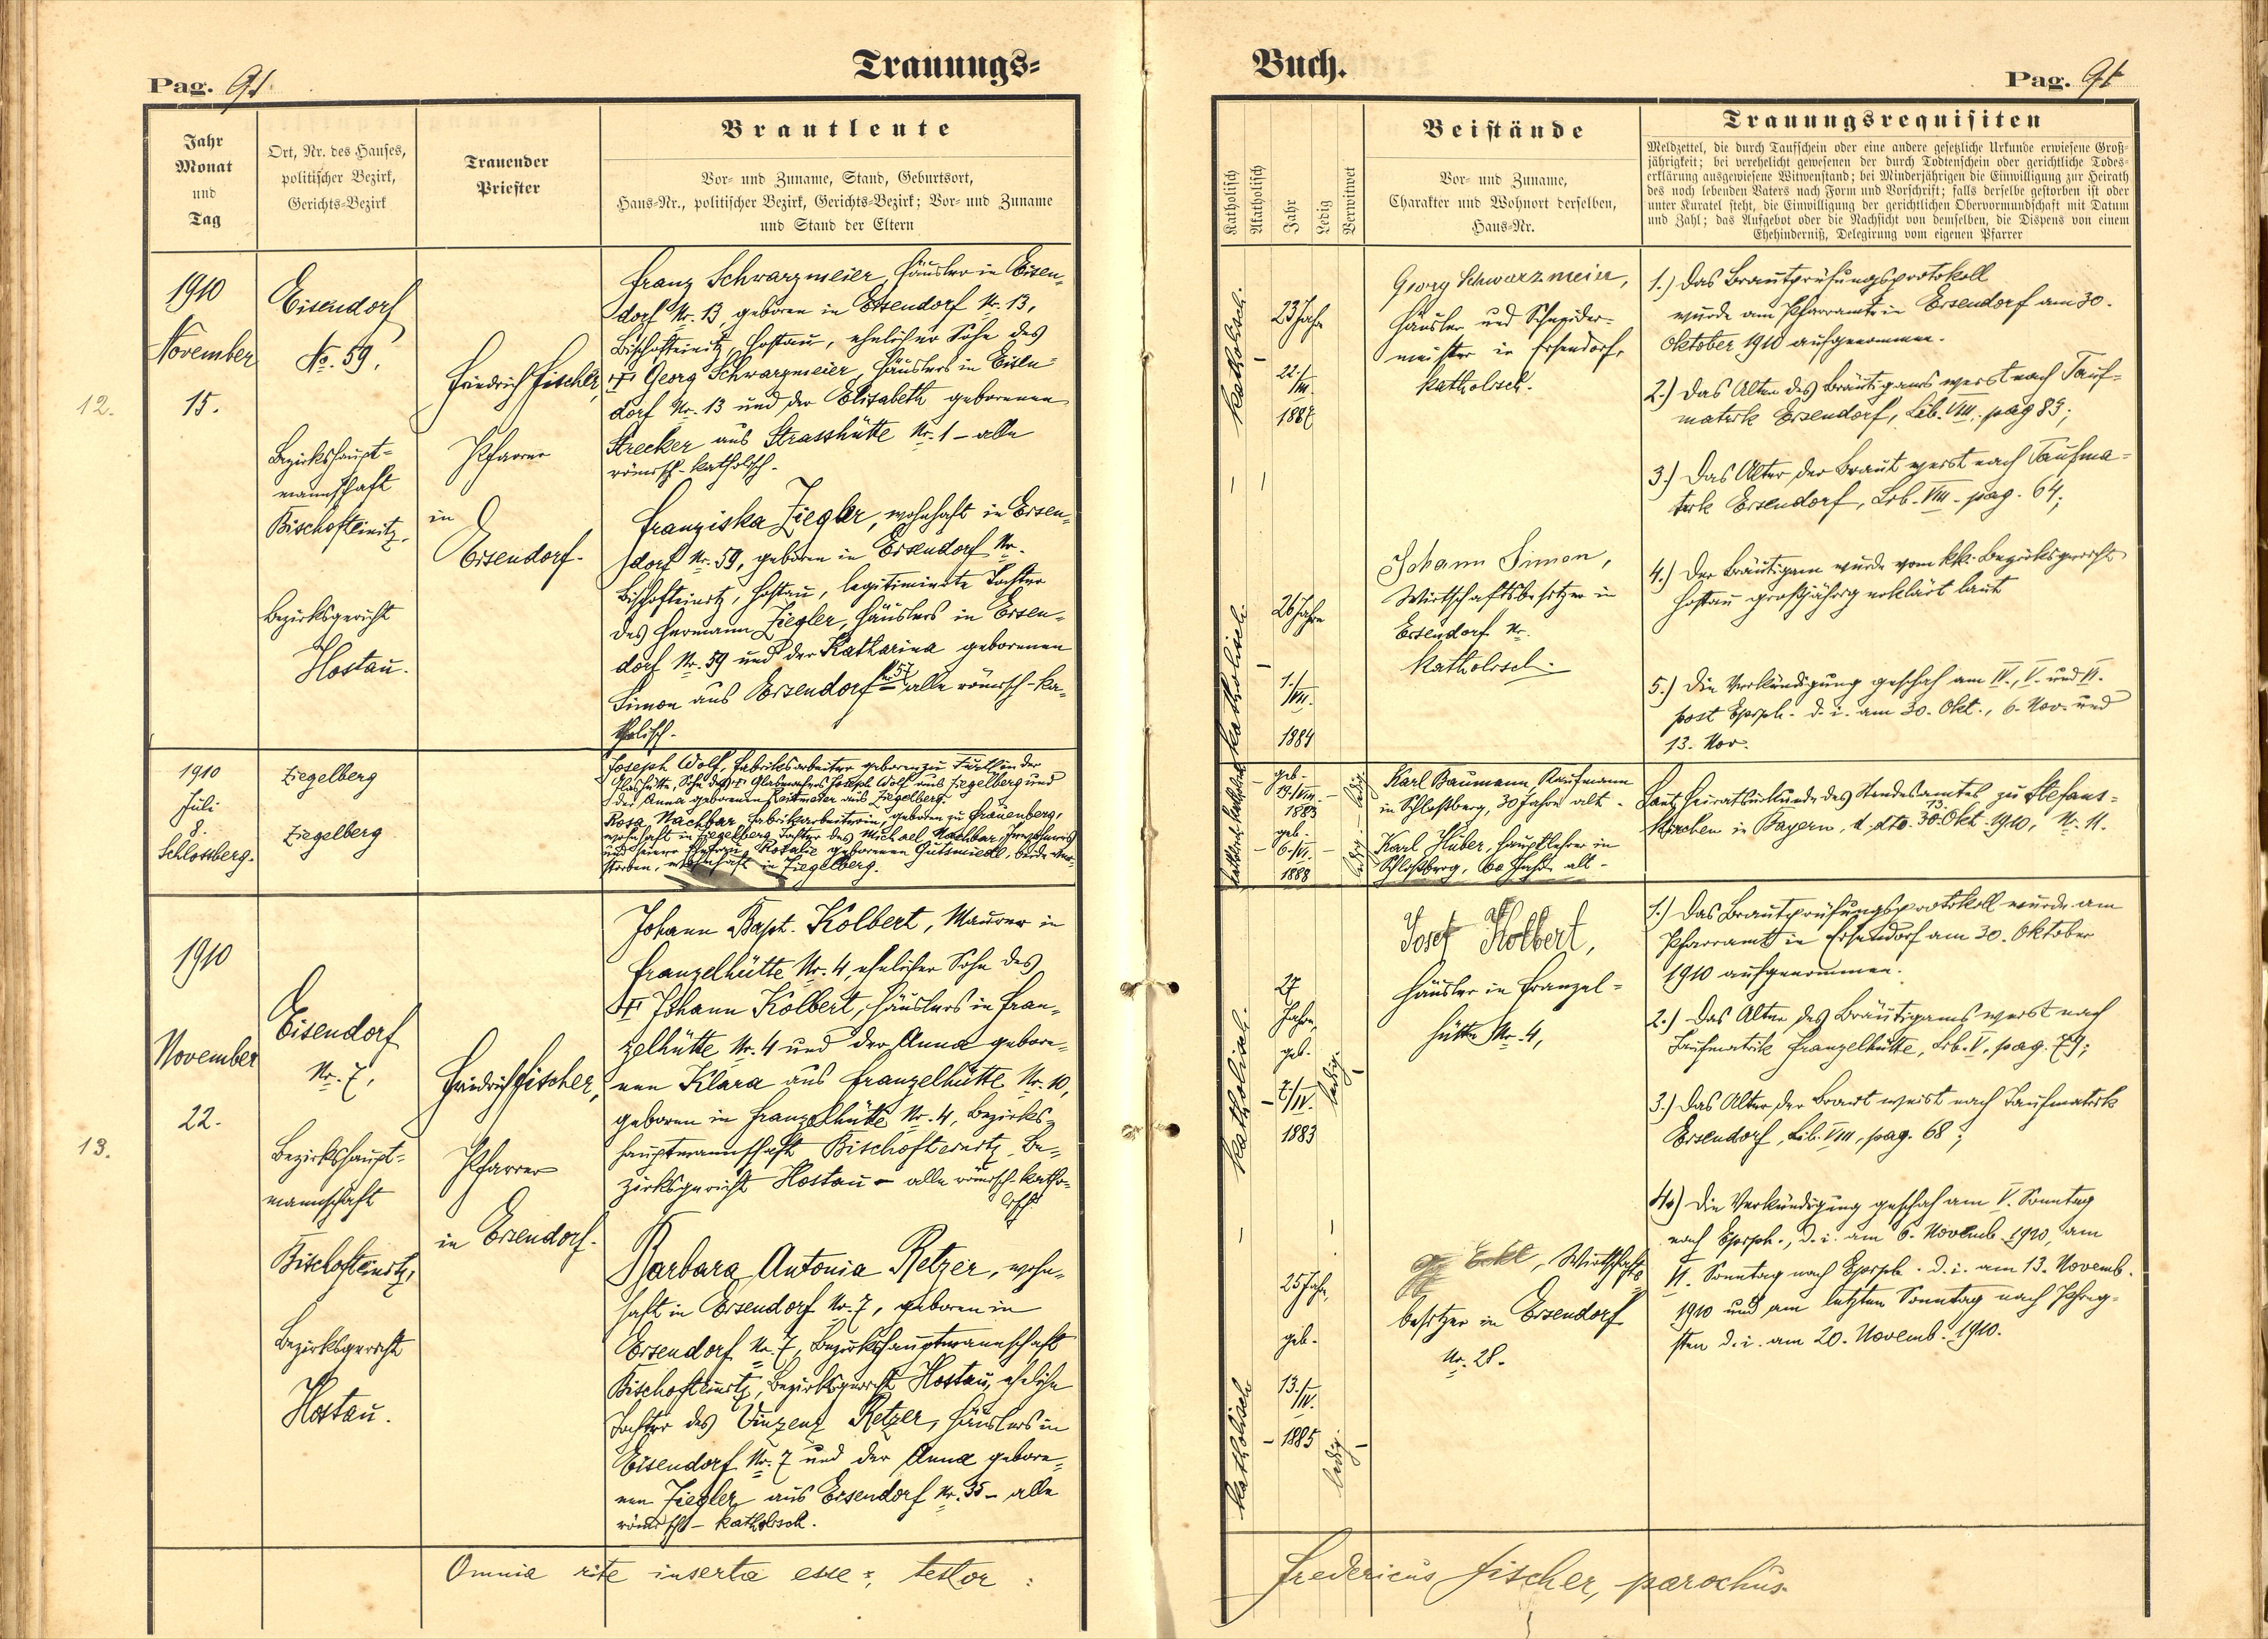 Trauungs=
Buch.
Pag. 91
Pag. 91
Jahr
Monat
und
Tag
Ort, Nr. des Hauses,
politischer Bezirk,
Gerichts-Bezirk
Trauender
Priester
Brautleute
Vor- und Zuname, Stand, Geburtsort,
Haus-Nr., politischer Bezirk, Gerichts-Bezirk; Vor- und Zuname
und Stand der Eltern
Katholisch
Akatholisch
Jahr
Ledig
Verwitwet
Beistände
Vor- und Zuname,
Charakter und Wohnort derselben,
Haus-Nr.
Trauungsrequisiten
Meldzettel, die durch Taufschein oder eine andere gesetzliche Urkunde erwiesene Groß-
jährigkeit; bei verehelicht gewesenen der durch Todtenschein oder gerichtliche Todes-
erklärung ausgewiesene Witwenstand; bei Minderjährigen die Einwilligung zur Heirath
des noch lebenden Vaters nach Form und Vorschrift; falls derselbe gestorben ist oder
unter Kuratel steht, die Einwilligung der gerichtlichen Obervormundschaft mit Datum
und Zahl; das Aufgebot oder die Nachsicht von demselben, die Dispens von einem
Ehehinderniß, Delegirung vom eigenen Pfarrer
12.
1910
November
15.
Eisendorf
No. 59.
Bezirkshaupt-
mannschaft
Bischofteinitz,
Bezirksgericht
Hostau.
Friedrich Fischer,
Pfarrer
in
Eisendorf.
Franz Schwarzmeier, Häusler in Eisen-
dorf Nr. 13, geboren in Eisendorf Nr. 13,
Bischofteinitz, Hostau, ehelicher Sohn des
Georg Schwarzmeier, Häuslers in Eisen-
dorf Nr. 13 und der Elisabeth geborenen
Strecker aus Strasshütte Nr. 1 - alle
römisch-katholisch.
Franziska Ziegler, wohnhaft in Eisen-
dorf Nr. 59, geboren in Eisendorf Nr.
Bischofteinitz, Hostau, legitimierte Tochter
des Hermann Ziegler, Häuslers in Eisen-
dorf Nr. 59 und der Katharina geborenen
Simon aus Eisendorf Nr. 57 alle römisch-ka-
tholisch.
katholisch.
23 Jahre
22./
III.
1887
katholisch.
26 Jahre
1./
VIII.
1884
Georg Schwarzmeier,
Häusler und Schneider-
meister in Eisendorf,
katholisch.
Johann Simon,
Wirtschaftsbesitzer in
Eisendorf Nr.
katholisch.
1.) Das Brautprüfungsprotokoll
wurde am Pfarramte in Eisendorf am 30.
Oktober 1910 aufgenommen.
2.) Das Alter des Bräutigams weist nach Tauf-
matrik Eisendorf, Lib. VIII. pag 83;
3.) Das Alter der Braut weist nach Taufma-
trik Eisendorf, Lib. VIII. pag. 64;
4.) Der Bräutigam wurde vom k.k. Bezirksgericht
Hostau großjährig erklärt laut
5.) Die Verkündigung geschah am IV., V. und VI.
post Epiph. d. i. am 30. Okt., 6. Nov. und
13. Nov.
1910
Juli
8.
Schlossberg.
Ziegelberg
Ziegelberg
Joseph Wolf, Fabriksarbeiter geboren zu Furth in der
Glashütte, Sohn des Glasmachers Joseph Wolf aus Ziegelberg und
der Anna geborenen Reitmeier aus Ziegelberg.
Rosa Nachbar, Fabrikarbeiterin, geboren zu Frauenberg,
wohnhaft in Ziegelberg, Tochter des Michael Nachbar,
und seiner Ehefrau Rosalie geborenen Gutsmiedl, beide ver-
storben, wohnhaft in Ziegelberg.
geb.
1883
ledig.
geb.
6./VI.
1888
ledig.
Karl Baumann, Kaufmann
in Schloßberg, 30 Jahre alt -
Karl Huber, Hauptlehrer in
Schloßberg, 60 Jahre alt -
Laut Heiratsurkunde des Standesamtes zu Stefans-
kirchen in Bayern, d. dto. 30. Okt. 1910, Nr. 11.
13.
1910
November
22.
Eisendorf
Nr. 7,
Bezirkshaupt-
mannschaft
Bischofteinitz,
Bezirksgericht
Hostau.
Friedrich Fischer,
Pfarrer
in Eisendorf.
Johann Bapt. Kolbert, Maurer in
Franzelhütte Nr. 4, ehelicher Sohn des
Johann Kolbert, Häuslers in Fran-
zelhütte Nr. 4 und der Anna gebore-
nen Klara aus Franzelhütte Nr. 10,
geboren in Franzelhütte Nr. 4, Bezirks-
hauptmannschaft Bischofteinitz, Be-
zirksgericht Hostau - alle römisch-katho-
lisch
Barbara Antonia Retzer, wohn-
haft in Eisendorf Nr. 7, geboren in
Eisendorf Nr. 7, Bezirkshauptmannschaft
Bischofteinitz, Bezirksgericht Hostau, eheliche
Tochter des Vinzenz Retzer, Häuslers in
Eisendorf Nr. 7 und der Anna gebore-
nen Ziegler aus Eisendorf Nr. 35 - alle
römisch - katholisch.
katholisch.
27
Jahre,
geb.
2./IV.
1883
ledig.
katholisch
25 Jahre,
geb.
13./
IV.
1885
ledig.
Josef Kolbert,
Häusler in Franzel-
hütte Nr. 4,
Eckl, Wirtschafts-
besitzer in Eisendorf
Nr. 28.
1.) Das Brautprüfungsprotokoll wurde am
Pfarramt in Eisendorf am 30. Oktober
1910 aufgenommen.
2.) Das Alter des Bräutigams weist nach
Taufmatrik Franzelhütte, Lib. V, pag. 79;
3.) Das Alter der Braut weist nach Taufmatrik
Eisendorf, Lib. VIII, pag. 68;
4.) Die Verkündigung geschah am V. Sonntag
nach Epiph., d. i. am 6. Novemb. 1910, am
VI. Sonntag nach Epiph. d. i. am 13. Novemb.
1910 und am letzten Sonntag nach Pfing-
sten d. i. am 20. Novemb. 1910.
Omnia rite inserta esse, testor:
Fredericus Fischer, parochus.